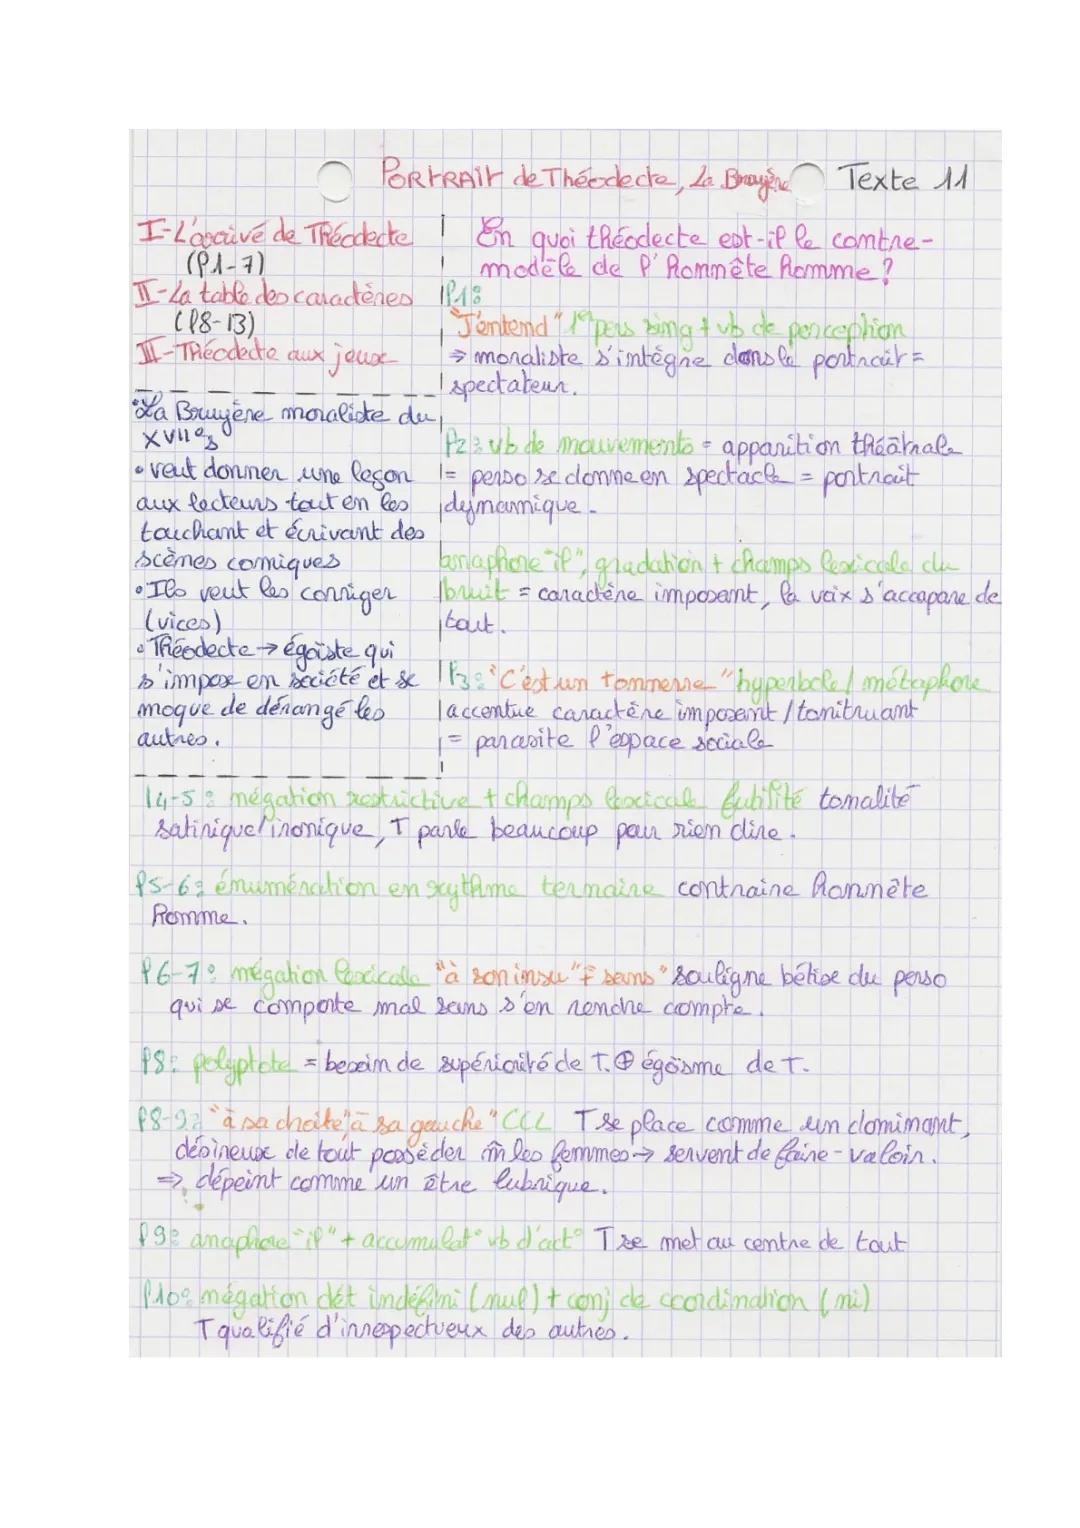 PORTRAIT de Théodecte, La Bruyère Texte 11
I-L'arrivé de Théodecte
(l1-7)
II-La table des caractères
(l8-13)
III-Théodecte aux jeux
•La Bruyère moraliste du
XVII°s
• veut donner une leçon
aux lecteurs tout en les
touchant et écrivant des
scènes comiques
• Ils veut les corriger
(vices)
• Théodecte → égoïste qui
s'impose en société et se
moque de dérangé les
autres.
En quoi théodecte est-il le contre-
modèle de l'Honnête homme ?
l1:
"J'entend" 1e pers sing + vb de perception
⇒ moraliste s'intègre dans le portrait =
spectateur.
l2: vb de mouvements = apparition théâtrale
= perso se donne en spectacle = portrait
dynamique.
anaphore "il", gradation + champs lexicale du
bruit = caractère imposant, la voix s'accapare de
tout.
l3: "C'est un tonnerre" hyperbole / métaphore
accentue caractère imposant / tonitruant
= parasite l'espace sociale
l4-5: négation restrictive + champs lexicale futilité tonalité
satirique/ironique, T parle beaucoup pour rien dire.
l5-6: énumération en rythme ternaire contraire honnête
homme.
l6-7: négation lexicale "à son insu" + sens "souligne bétise du perso
qui se comporte mal sans s'en rendre compte.
l8: polyptote = besoin de supériorité de T. ⊕ égoïsme de T.
l8-9: "à sa droite" à sa gauche" CCL T se place comme un dominant,
désireux de tout posséder m̂ les femmes → servent de faire-valoir.
⇒ dépeint comme un être lubrique.
l9: anaphore "il" + accumulat° vb d'act° T se met au centre de tout
l10: négation dét indéfini (nul) + conj de coordination (ni)
T qualifié d'irrespectueux des autres.